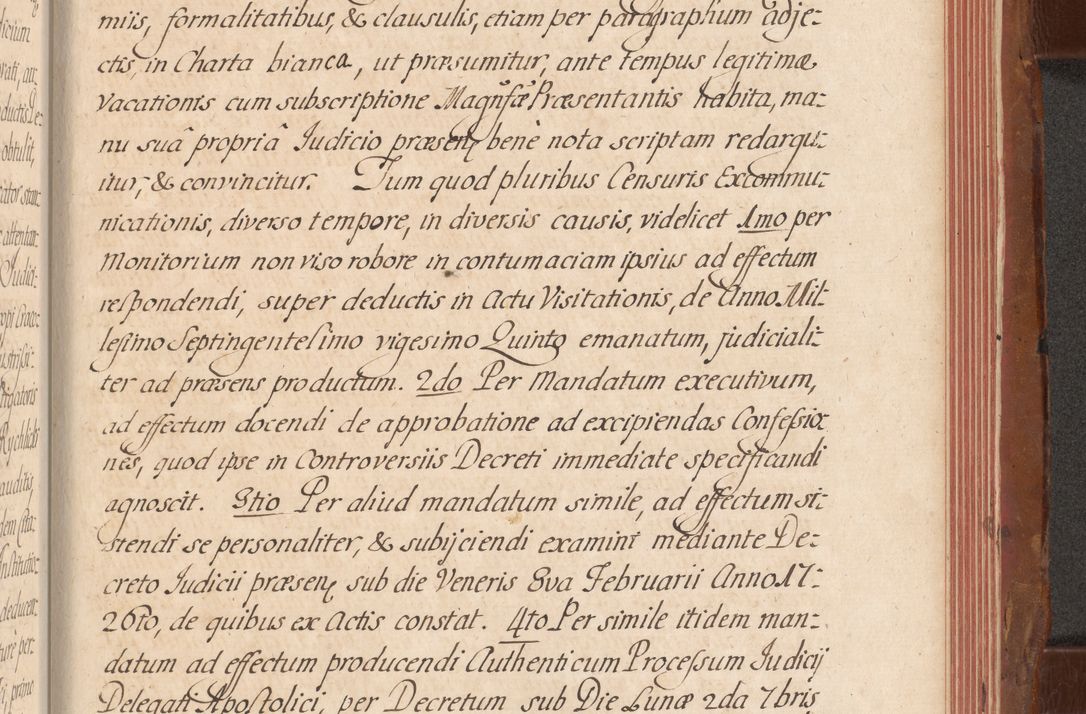 miis, formalitatibus, & clausulis, etiam per paragraphum adje:
ctis, in Charta bianca, ut præsumitur, ante tempus legitimæ
vacationis cum subscriptione Magnfæ Præsentantis habita, ma:
nu suâ propriâ Judicio præsenę benè nota scriptam redargu:
itur, & convincitur. Tum quod pluribus Censuris Excommu:
nicationis, diverso tempore, in diversis causis, videlicet 1mo per
Monitorium non viso robore in contumaciam ipsius ad effectum
respondendi, super deductis in Actu Visitationis, de Anno Mil:
lesimo Septingentesimo vigesimo Quinto emanatum, judiciali:
ter ad præsens productum. 2do Per Mandatum executivum,
ad effectum docendi de approbatione ad excipiendas Confessio:
nes, quod ipse in Controversiis Decreti immediate specificandi
agnoscit. 3tio Per aliud mandatum simile, ad effectum si:
stendi se personaliter, & subijciendi examini mediante De:
creto Judicii præsenę sub die Veneris 8va Februarii Anno 17:
26to, de quibus ex Actis constat. 4to Per simile itidem man:
datum ad effectum producendi Authenticum Processum Judicij
Delegati Apostolici, per Decretum sub Die Lunæ 2da 7bris